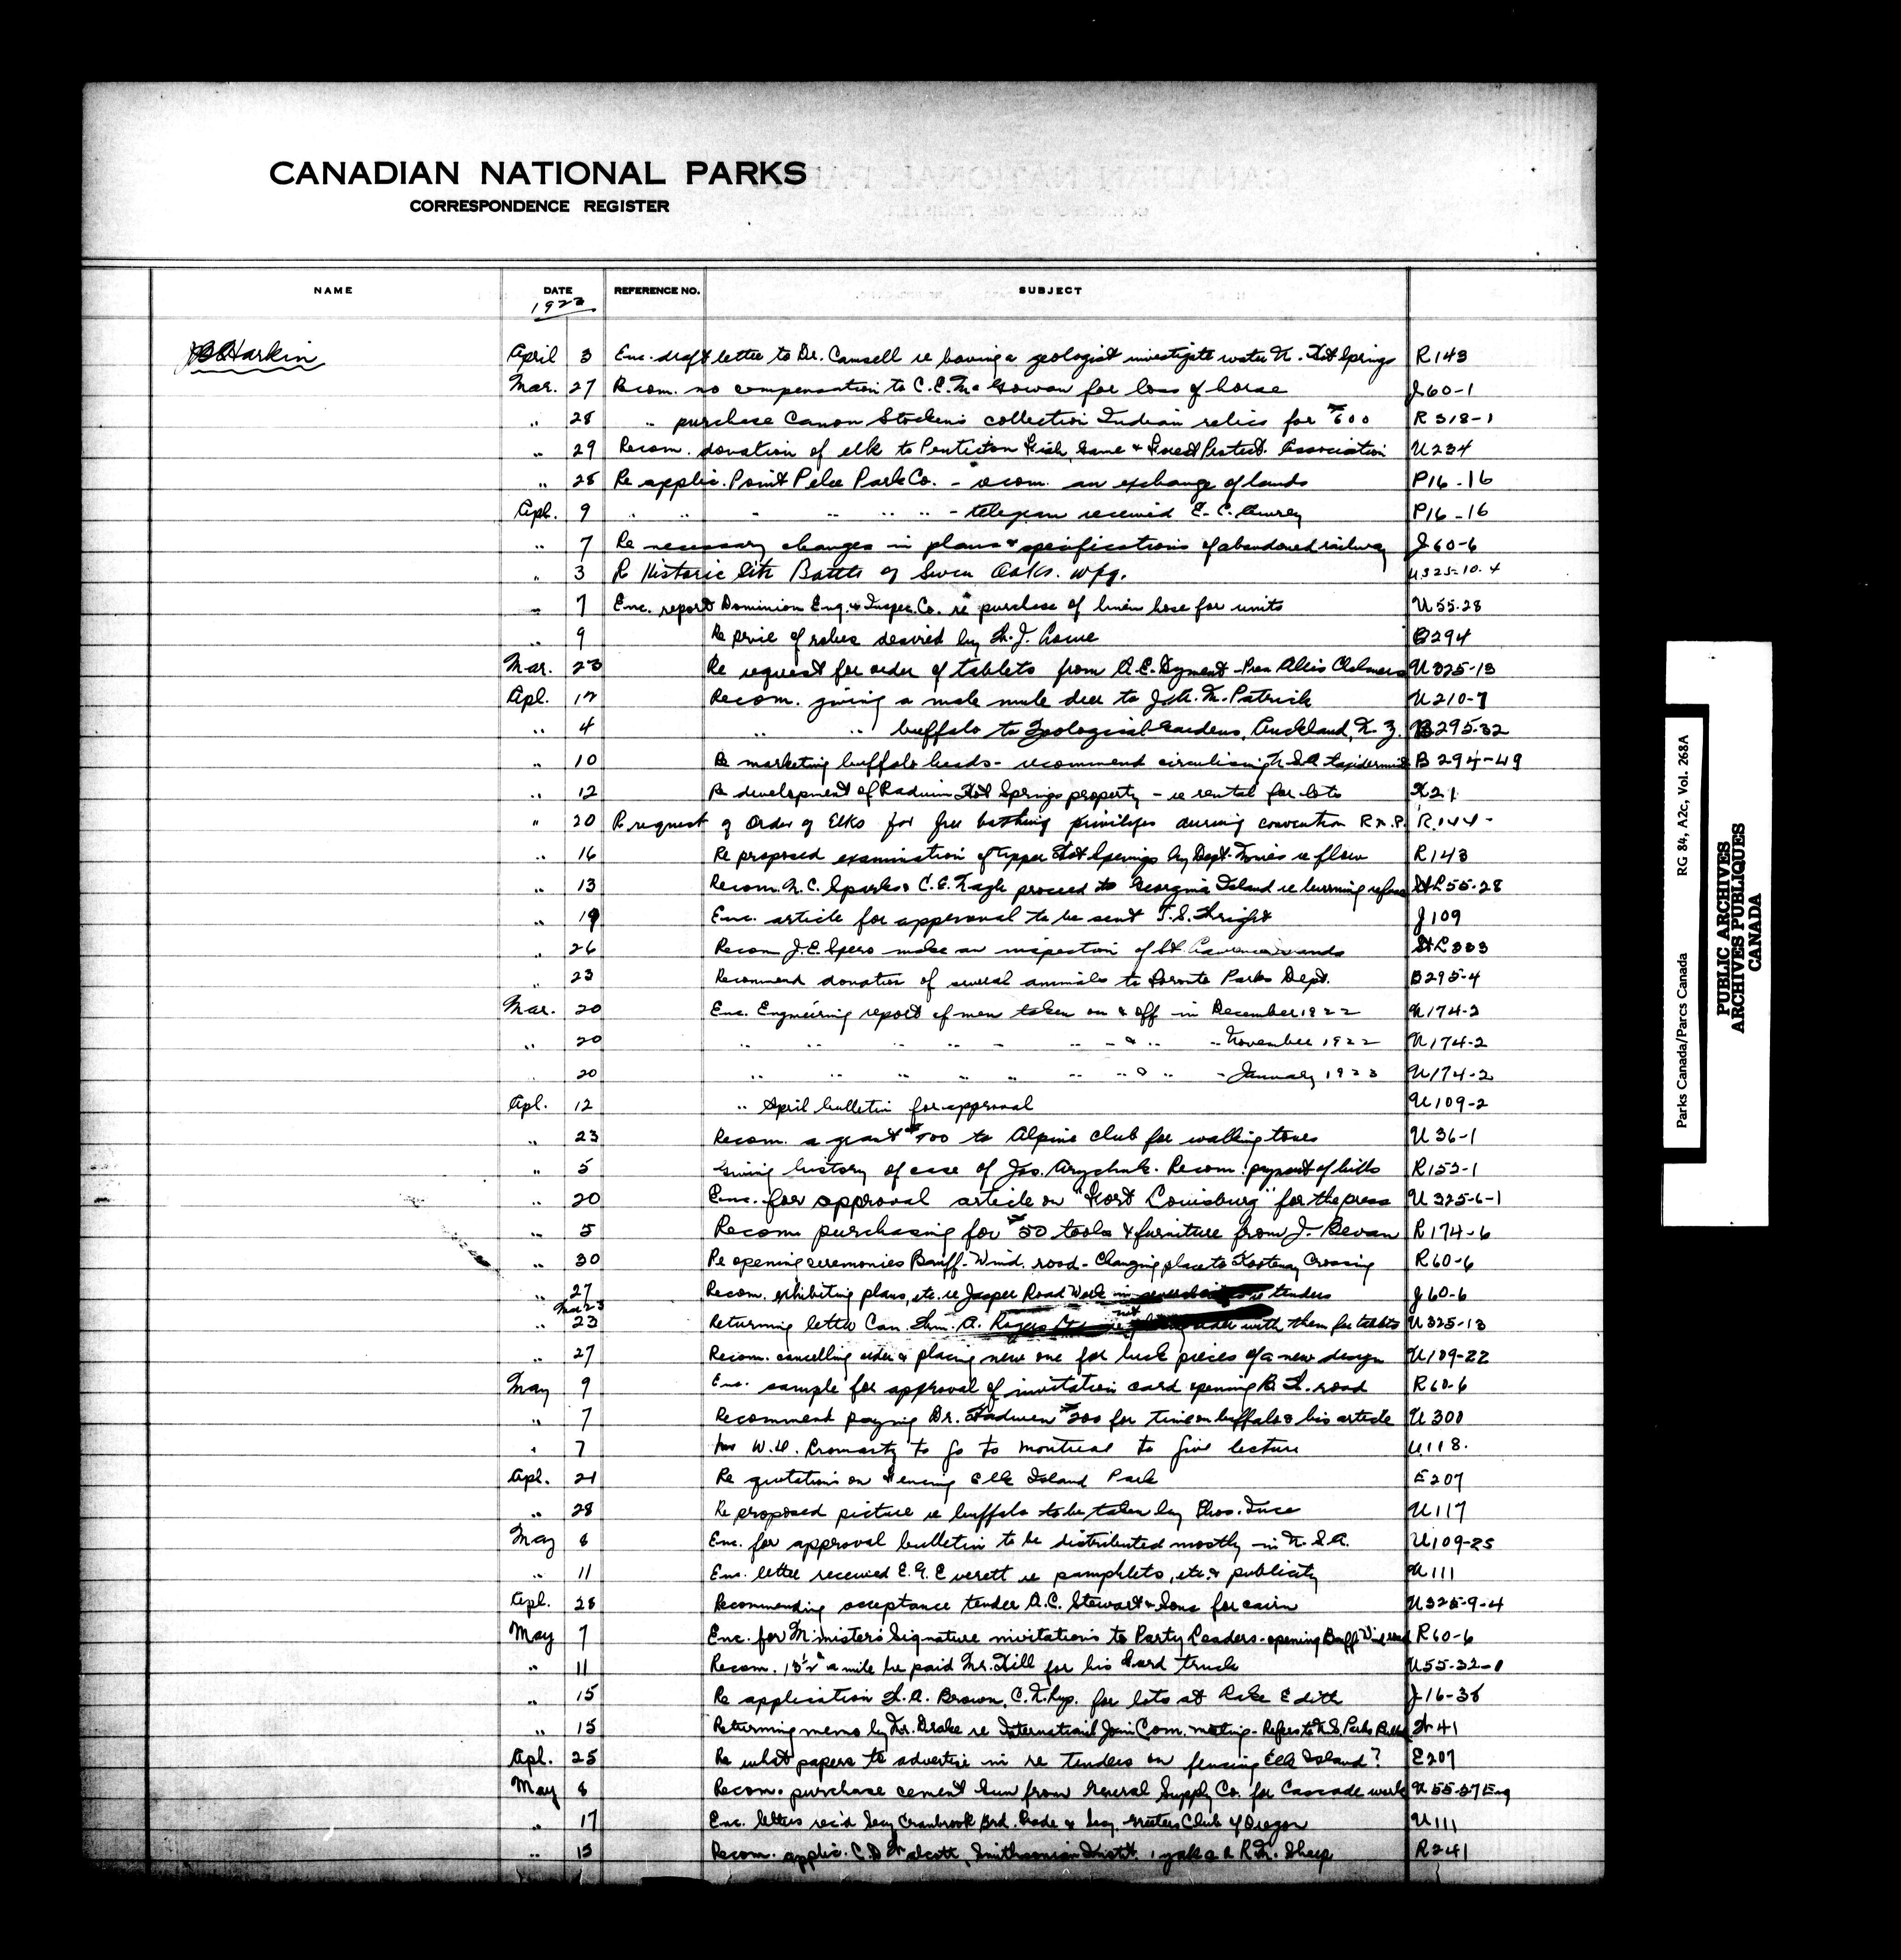 CANADIAN NATIONAL PARKS
CORRESPONDENCE REGISTER
NAME DATE REFERENCE NO. SUBJECT
1923
JB Harkin April 3 Enc. draft letter to Dr. Camsell re having a geologist investigate water Hot Springs R143
Mar. 27 Recom. no compensation to C.E. McGowan for loss of horse J60-1
" 28 " purchase Canon Stocken's collection Indian relics for $600 R318-1
" 29 Recom. donation of elk to Penticton Fish, Game & Forest Protect. Association U234
" 28 Re applic. Point Pelee Park Co. - recom. an exchange of lands P16-16
Apl. 9 " " " " " " - telegram received E.C. P16-16
" 7 Re necessary changes in plans & specifications of abandoned railway J60-6
" 3 Re Historic Site Battle of Seven Oaks. Wpg. U325-10.4
" 7 Enc. report Dominion Eng. & Inspec. Co. re purchase of linen hose for units U55-28
" 9 Re price of robes desired by B294
Mar. 23 Re request for order of tablets from A.E. Dyment - Pres Allis Chalmers U325-13
Apl. 12 Recom. giving a male mule deer to Patrick U210-7
" 4 " " buffalo to Zoological Gardens, Auckland, N.Z. B295-32
" 10 Re marketing buffalo heads - recommend circularising U.S.A. taxidermists B294-49
" 12 Re development of Radium Hot Springs property - re rental for lots K21
" 20 Re request of Order of Elks for free bathing privileges during convention R.M.P. R.144-
" 16 Re proposed examination of Upper Hot Springs by Dept. Mines re flow R143
" 13 Recom. N.C. Sparks & C.E. Nagle proceed to Georgina Island re burning refuse StL55-28
" 19 Enc. article for approval to be sent J109
" 26 Recom J.E. Spero make an inspection of St. Lawrence Islands StL333
" 23 Recommend donation of several animals to Toronto Parks Dept. B295-4
Mar. 20 Enc. Engineering report of men taken on & off in December 1922 U174-2
" 20 " " " " " " " & " " November 1922 U174-2
20 " " " " " " " & " " January 1923 U174-2
Apl. 12 " April bulletin for approval U109-2
" 23 Recom. a grant $500 to Alpine Club for walking tours U36-1
" 5 Giving history of case of Jos. Recom. payment of bills R152-1
" 20 Enc. for approval article on "Fort Louisburg" for the press U325-6-1
" 5 Recom. purchasing for $50 tools & furniture from J. Bevan R174-6
" 30 Re opening ceremonies Banff-Wind. road - Changing place to Kootenay Crossing R60-6
" 27 Recom. exhibiting plans, etc. re Jasper Road Work in re tenders J60-6
Mar 23
" 23 Returning letter Can. Wm. A. Rogers not with them for tablets U325-13
" 27 Recom. cancelling order & placing new one for luck pieces of a new design U109-22
May 9 Enc. sample for approval of invitation card opening B.W. road R60-6
" 7 Recomment paying Dr. Hadwen $200 for time on buffalo & his article U300
" 7 for W.D. Cromarty to go to Montreal to give lecture U118.
Apl. 21 Re quotations on fencing Elk Island Park E207
" 28 Re proposed picture re buffalo to be taken by Thos. Ince U117
May 8 Enc. for approval bulletin to be distributed mostly in U.S.A. U109-25
" 11 Enc. letter received E.G. Everett re pamphlets, etc. & publicity U111
Apl. 28 Recommending acceptance tender A.C. Stewart & Sons for cairn U325-9-4
May 7 Enc. for Minister's Signature invitations to Party Leaders - opening Banff Wind. road R60-6
" 11 Recom. 13½¢ a mile be paid Mr. Hill for his Ford truck U55-32-1
" 15 Re application Brown, C.N. Rys. for lots at Lake Edith J16-38
" 15 Returning memo by Mr. Drake re International Join Com. meeting - Refers to U.S. Parks W41
Apl. 25 Re what papers to advertise in re tenders on fencing Elk Island? E207
May 8 Recom. purchase cement Gun from General Supply Co. for Cascade work U55-37Eng
" 17 Enc. letters rec'd Secy Cranbrook Brd. Trade & Secy. Greeters Club of Oregon U111
" 15 Recom. applic. C.D. Walcott, Smithsonian Instit. R.M. Sheep R241
Parks Canada/Parcs Canada RG 84, A2c, Vol. 268A
PUBLIC ARCHIVES
ARCHIVES PUBLIQUES
CANADA